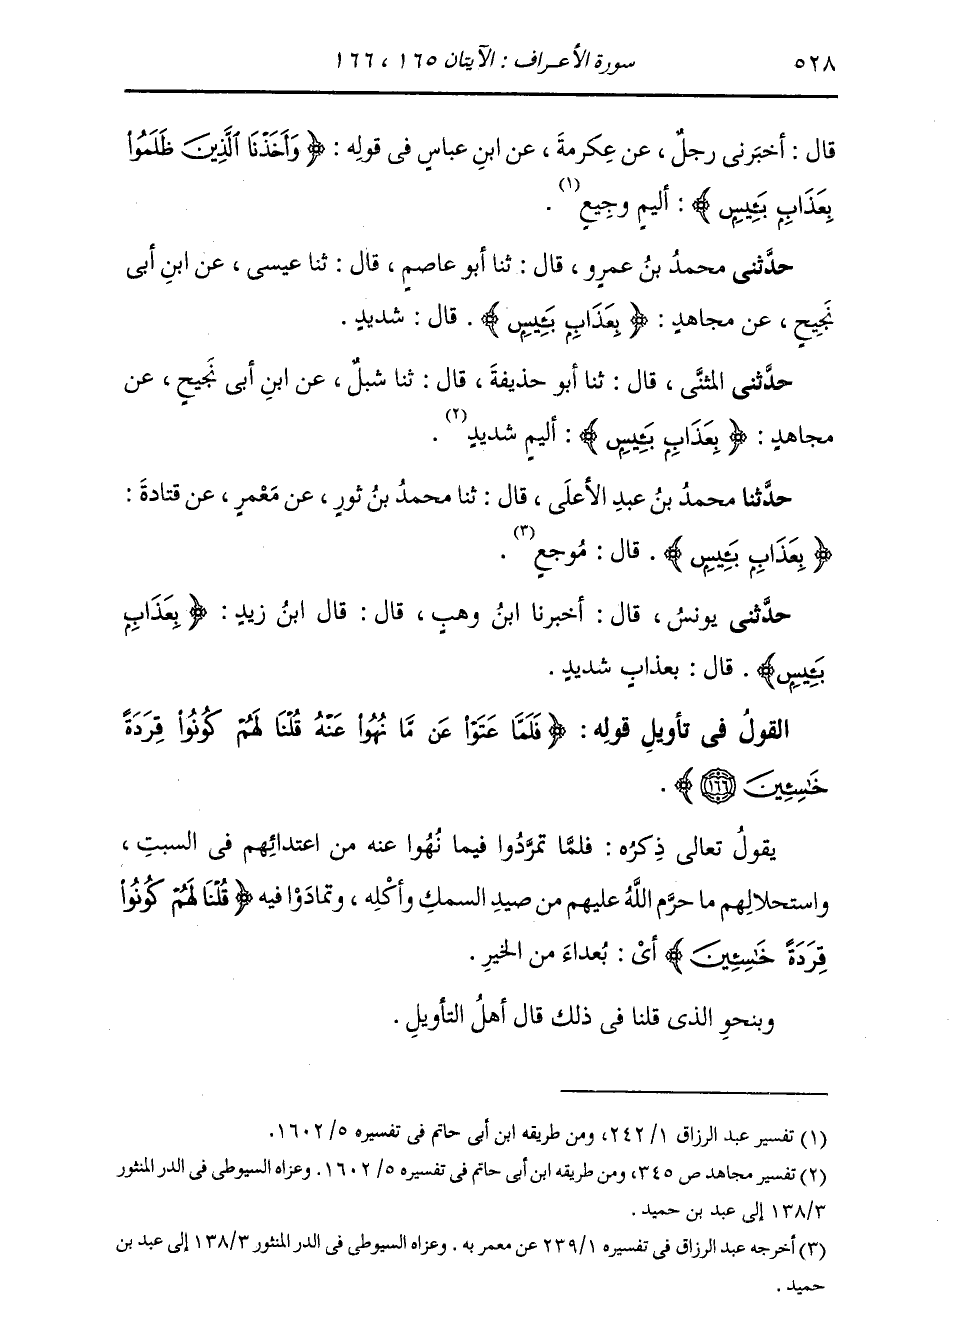 ٥٢٨ سورة الأعراف : الآيتان ١٦٥ ، ١٦٦
قال : أخبَرنى رجلٌ ، عن عِكرمةَ ، عن ابنِ عباسٍ فى قولِه : ﴿ وَأَخَذْنَا ٱلَّذِينَ ظَلَمُوا۟
بِعَذَابٍ بَئِيسٍ ﴾ : أليمٍ وجِيعٍ(١) .
حدَّثنى محمدُ بنُ عمرٍو ، قال : ثنا أبو عاصمٍ ، قال : ثنا عيسى ، عن ابنِ أبى
نَجِيحٍ ، عن مجاهدٍ : ﴿ بِعَذَابٍ بَئِيسٍ ﴾ . قال : شديدٍ .
حدَّثنى المثنَّى ، قال : ثنا أبو حذيفةَ ، قال : ثنا شبلٌ ، عن ابنِ أبى نَجيحٍ ، عن
مجاهدٍ : ﴿ بِعَذَابٍ بَئِيسٍ ﴾ : أليمٍ شديدٍ(٢) .
حدَّثنا محمدُ بنُ عبدِ الأعلَى ، قال : ثنا محمدُ بنُ ثورٍ ، عن مَعْمرٍ ، عن قتادةَ :
﴿ بِعَذَابٍ بَئِيسٍ ﴾ . قال : مُوجعٍ(٣) .
حدَّثنى يونسُ ، قال : أخبرنا ابنُ وهبٍ ، قال : قال ابنُ زيدٍ : ﴿ بِعَذَابٍ
بَئِيسٍ﴾ . قال : بعذابٍ شديدٍ .
القولُ فى تأويلِ قولِه : ﴿ فَلَمَّا عَتَوْا۟ عَن مَّا نُهُوا۟ عَنْهُ قُلْنَا لَهُمْ كُونُوا۟ قِرَدَةً
خَٰسِئِينَ ١٦٦ ﴾ .
يقولُ تعالى ذِكرُه : فلمَّا تمرَّدُوا فيما نُهُوا عنه من اعتدائِهم فى السبتِ ،
واستحلالِهم ما حرَّم اللَّهُ عليهم من صيدِ السمكِ وأكْلِه ، وتمادَوْا فيه ﴿ قُلْنَا لَهُمْ كُونُوا۟
قِرَدَةً خَٰسِئِينَ ﴾ أىْ : بُعداءَ من الخيرِ .
وبنحوِ الذى قلنا فى ذلك قال أهلُ التأويلِ .
(١) تفسير عبد الرزاق ١/ ٢٤٢، ومن طريقه ابن أبى حاتم فى تفسيره ٥/ ١٦٠٢.
(٢) تفسير مجاهد ص ٣٤٥، ومن طريقه ابن أبى حاتم فى تفسيره ٥/ ١٦٠٢. وعزاه السيوطى فى الدر المنثور
١٣٨/٣ إلى عبد بن حميد .
(٣) أخرجه عبد الرزاق فى تفسيره ٢٣٩/١ عن معمر به . وعزاه السيوطى فى الدر المنثور ١٣٨/٣ إلى عبد بن
حميد .